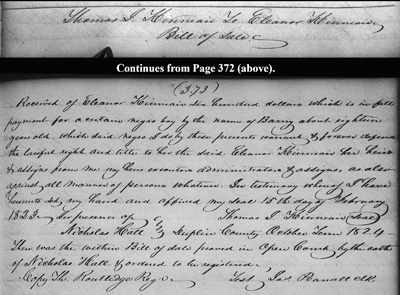 Thomas I. Kinnain To Eleanor Kinnain
Bill of Sale
Continues from Page 372 (above).
(373)
Received of Eleanor Kinnain Six hundred dollars which is in full
payment for a certain negro boy by the name of Barry about eighteen
years old which said negro I do by these presents warrant & forever defend
the lawful right and title to her the said Eleanor Kinnain her heirs
& assigns from me my heirs executors administrators & assigns, as also
against all manner of persons whatever. In testimony whereof I have
hereunto set my hand and affixed my seal 15th day of February
1823 In presence of Thomas I Kinnain Seal
Nicholas Hall } Duplin County October Term 1824
Then was the within Bill of Sale proved in Open Court by the oath
of Nicholas Hall & ordered to be registered.
Copy Th. Routledge Reg. Test Jas Pearsall clk